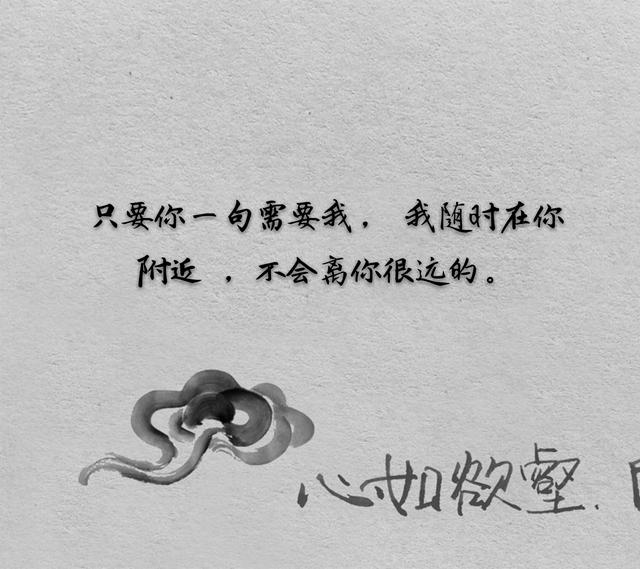 只要你一句需要我，我随时在你
附近，不会离你很远的。
心如欲壑.